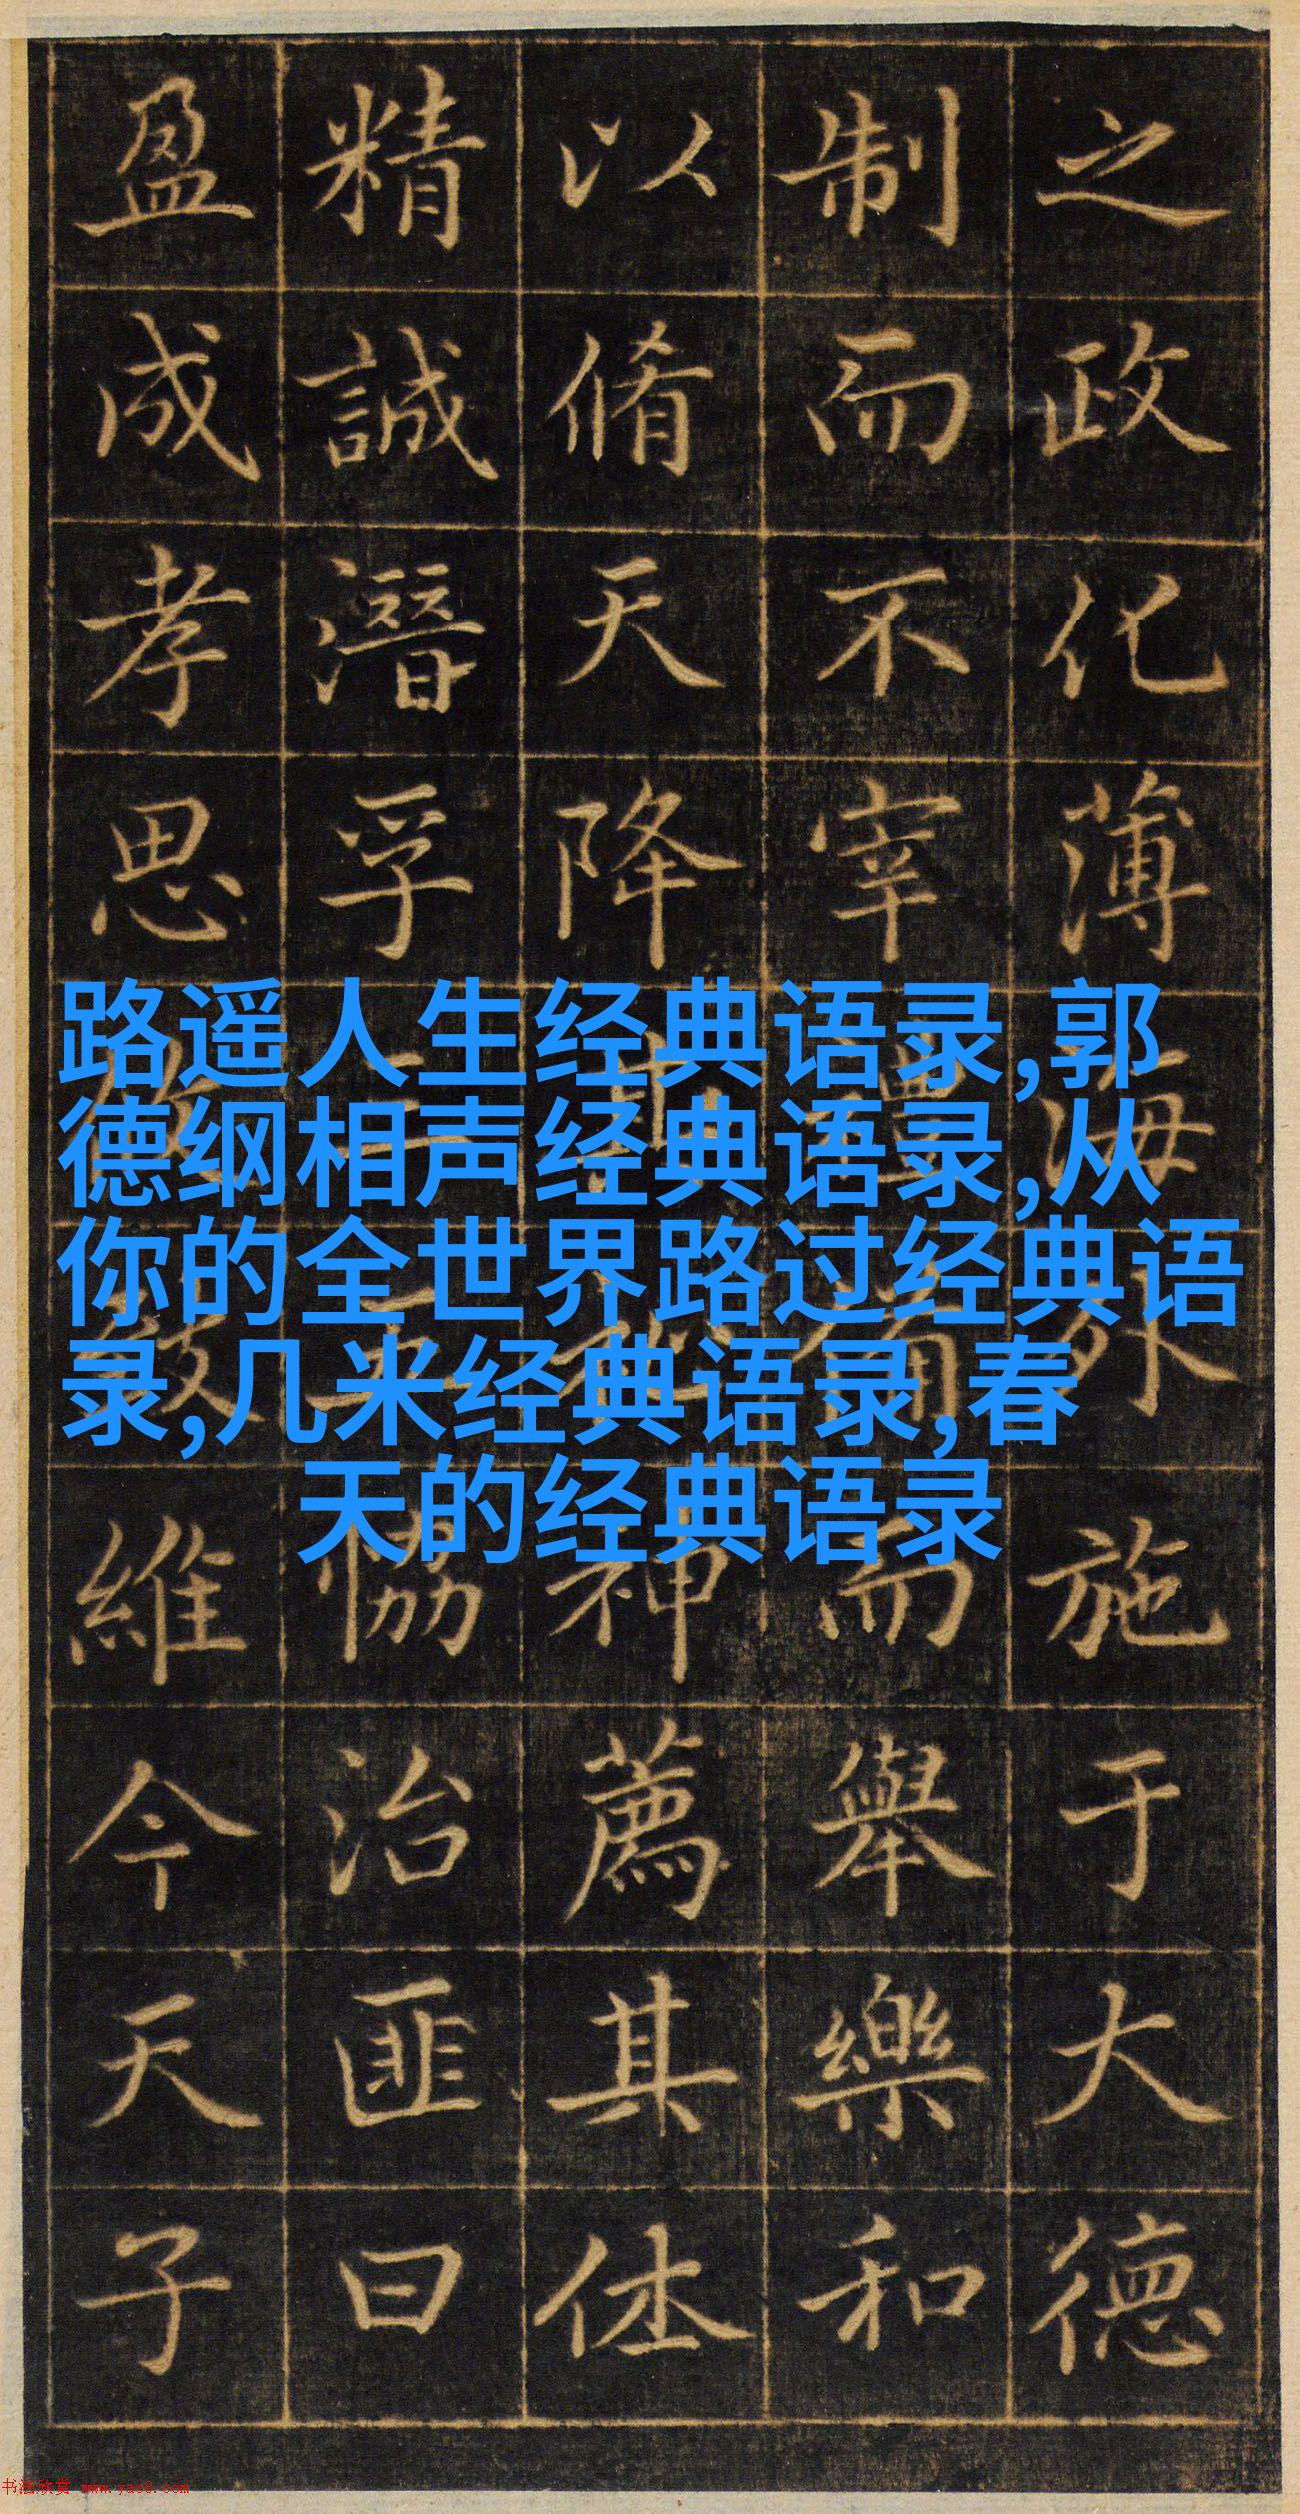 之政化薄海外施于大德
制而不宰禮備而舉樂和
以脩天降神薦其休
精誠潛孚協治匪曰
盈成孝思維今天子
路遥人生经典语录,郭
德纲相声经典语录,从
你的全世界路过经典语
录,几米经典语录,春
天的经典语录
书法欣赏 www.yac8.com